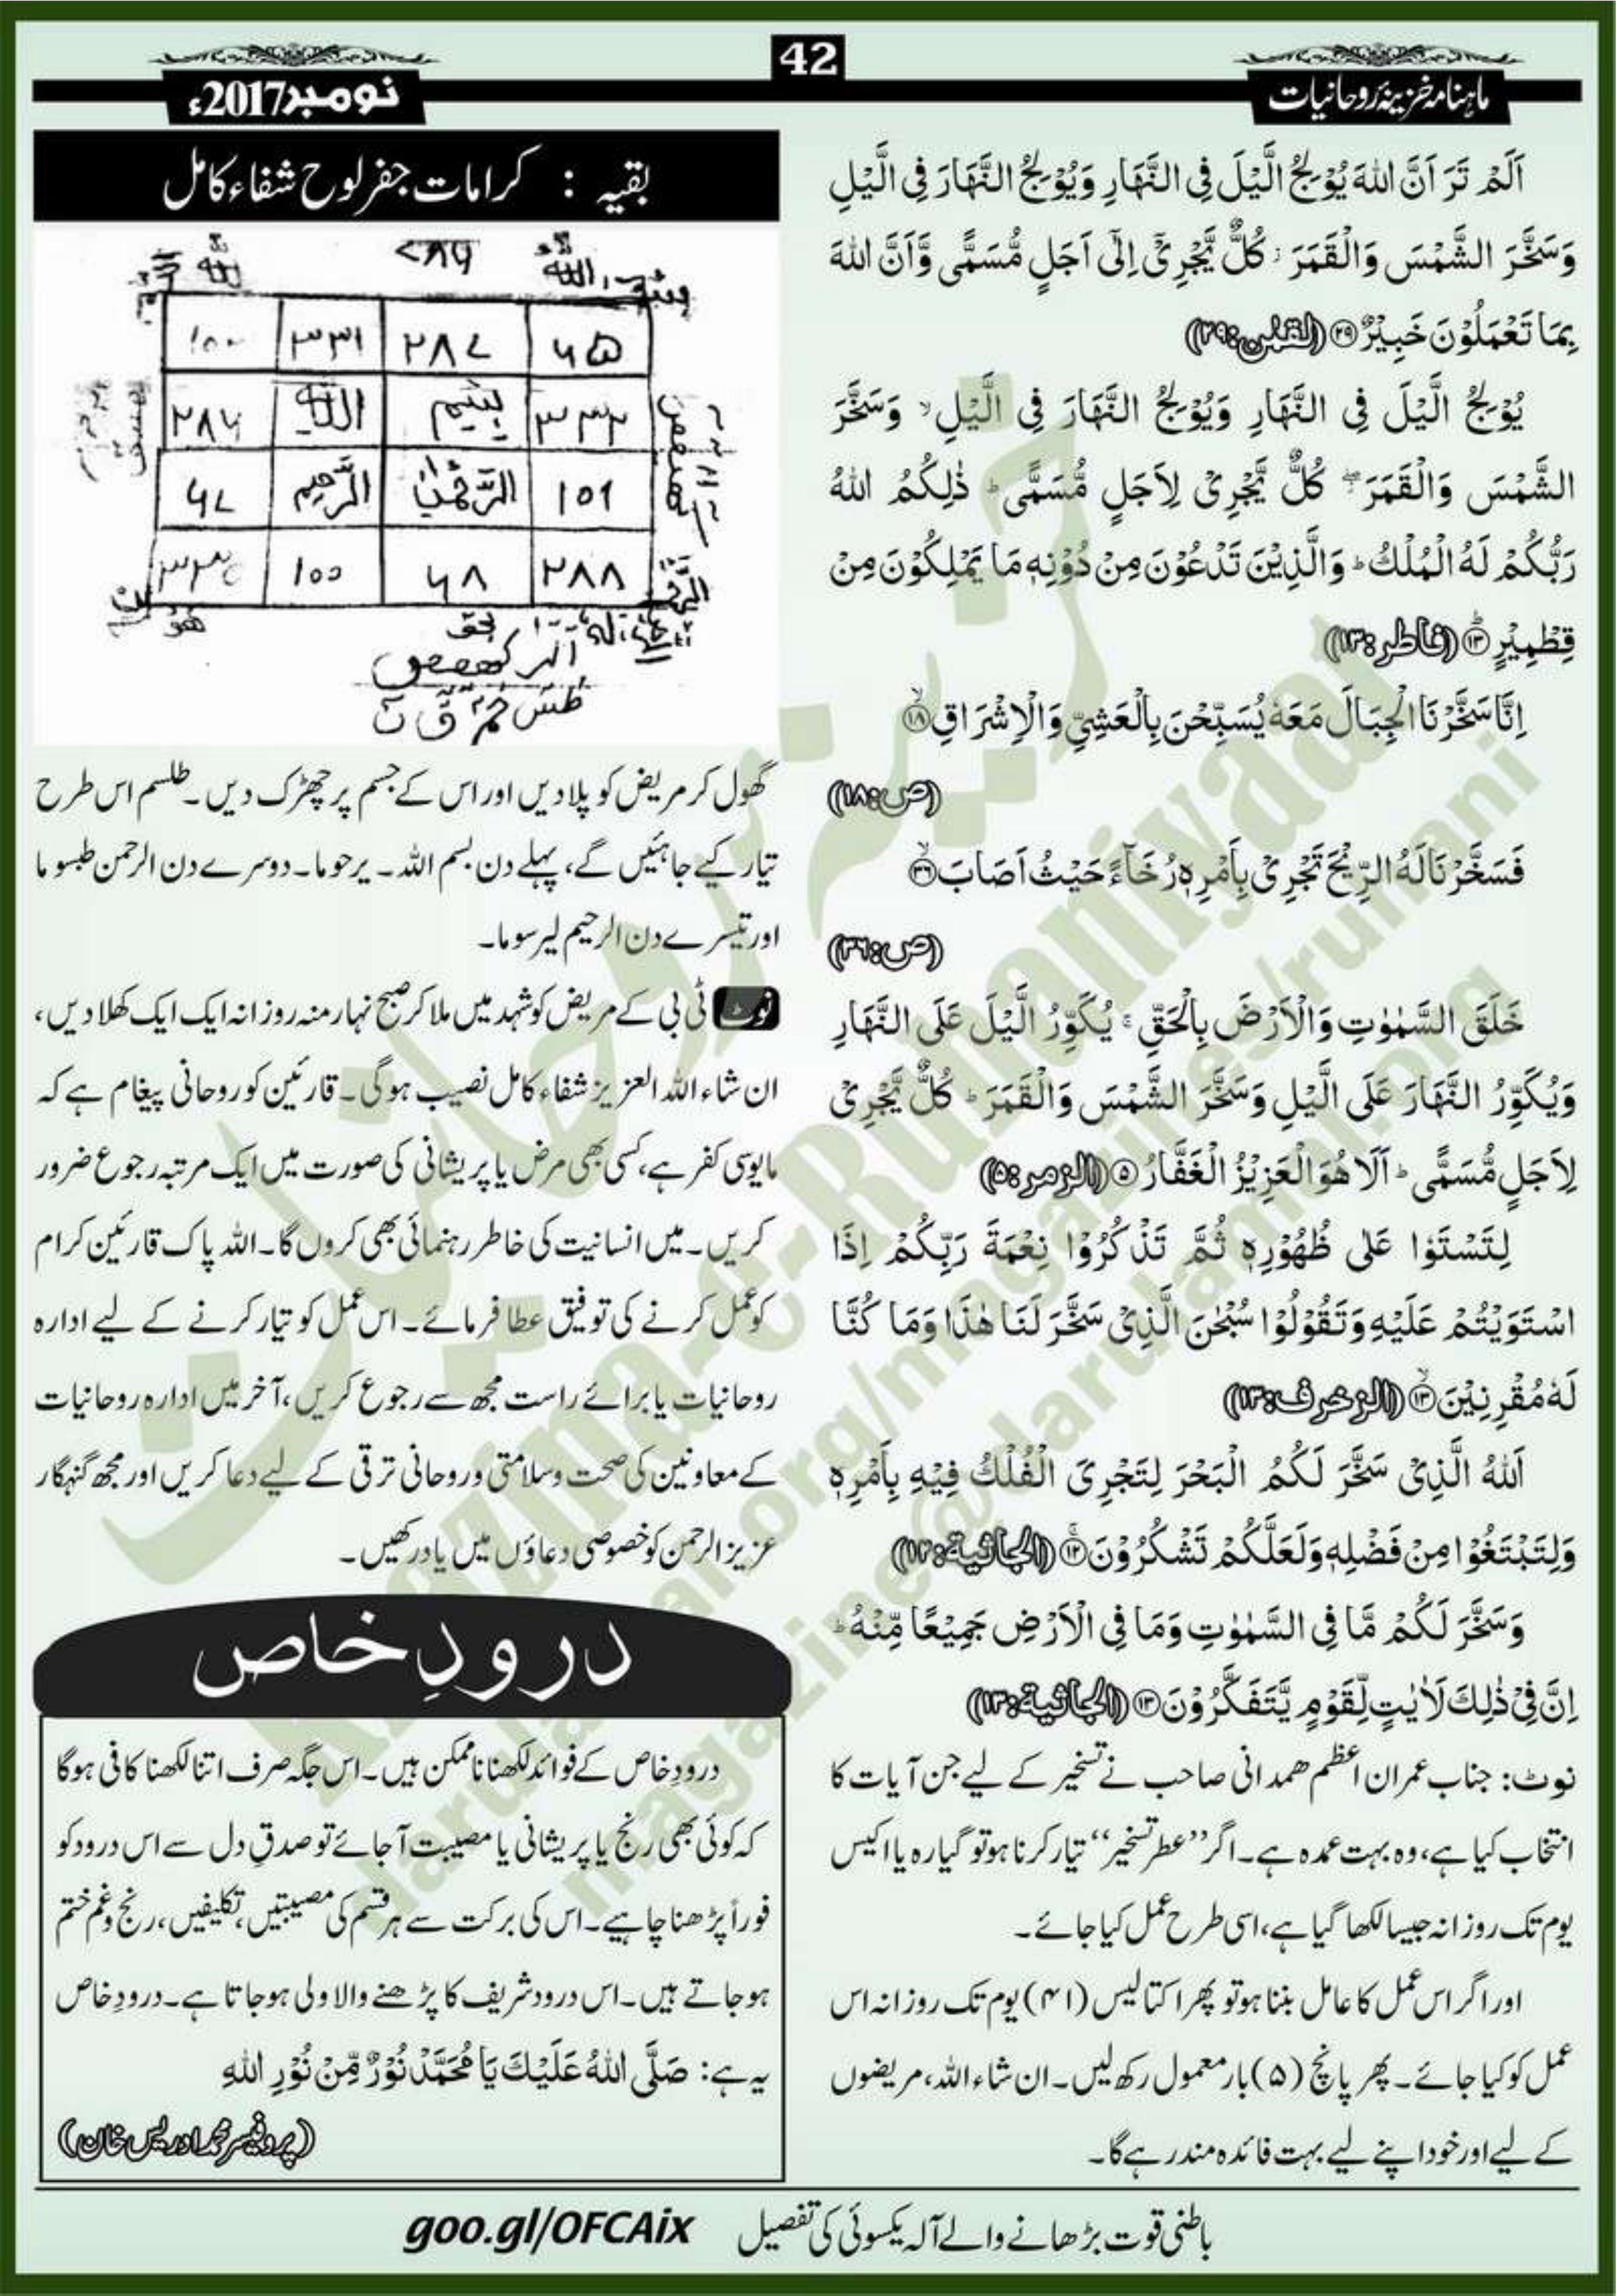 ماہنامہ خزینۂ روحانیات
42
نومبر 2017ء
اَلَمْ تَرَ اَنَّ اللهَ يُوْلِجُ الَّيْلَ فِى النَّهَارِ وَيُوْلِجُ النَّهَارَ فِى الَّيْلِ
وَسَخَّرَ الشَّمْسَ وَالْقَمَرَ ؗ كُلٌّ يَّجْرِىْٓ اِلٰٓى اَجَلٍ مُّسَمًّى وَّاَنَّ اللهَ
بِمَا تَعْمَلُوْنَ خَبِيْرٌ ۲۹ (لقمٰن:۲۹)
يُوْلِجُ الَّيْلَ فِى النَّهَارِ وَيُوْلِجُ النَّهَارَ فِى الَّيْلِ ۙ وَسَخَّرَ
الشَّمْسَ وَالْقَمَرَ ۖ كُلٌّ يَّجْرِىْ لِاَجَلٍ مُّسَمًّى ؕ ذٰلِكُمُ اللهُ
رَبُّكُمْ لَهُ الْمُلْكُ ؕ وَالَّذِيْنَ تَدْعُوْنَ مِنْ دُوْنِهٖ مَا يَمْلِكُوْنَ مِنْ
قِطْمِيْرٍ ۱۳ (فاطر:۱۳)
اِنَّا سَخَّرْنَا الْجِبَالَ مَعَهٗ يُسَبِّحْنَ بِالْعَشِىِّ وَالْاِشْرَاقِ ۱۸
(ص:۱۸)
فَسَخَّرْنَا لَهُ الرِّيْحَ تَجْرِىْ بِاَمْرِهٖ رُخَآءً حَيْثُ اَصَابَ ۳۶
(ص:۳۶)
خَلَقَ السَّمٰوٰتِ وَالْاَرْضَ بِالْحَقِّ ۚ يُكَوِّرُ الَّيْلَ عَلَى النَّهَارِ
وَيُكَوِّرُ النَّهَارَ عَلَى الَّيْلِ وَسَخَّرَ الشَّمْسَ وَالْقَمَرَ ؕ كُلٌّ يَّجْرِىْ
لِاَجَلٍ مُّسَمًّى ؕ اَلَا هُوَ الْعَزِيْزُ الْغَفَّارُ ۵ (الزمر:۵)
لِتَسْتَوٗا عَلٰى ظُهُوْرِهٖ ثُمَّ تَذْكُرُوْا نِعْمَةَ رَبِّكُمْ اِذَا
اسْتَوَيْتُمْ عَلَيْهِ وَتَقُوْلُوْا سُبْحٰنَ الَّذِىْ سَخَّرَ لَنَا هٰذَا وَمَا كُنَّا
لَهٗ مُقْرِنِيْنَ ۱۳ (الزخرف:۱۳)
اَللهُ الَّذِىْ سَخَّرَ لَكُمُ الْبَحْرَ لِتَجْرِىَ الْفُلْكُ فِيْهِ بِاَمْرِهٖ
وَلِتَبْتَغُوْا مِنْ فَضْلِهٖ وَلَعَلَّكُمْ تَشْكُرُوْنَ ۱۲ (الجاثیة:۱۲)
وَسَخَّرَ لَكُمْ مَّا فِى السَّمٰوٰتِ وَمَا فِى الْاَرْضِ جَمِيْعًا مِّنْهُ ؕ
اِنَّ فِىْ ذٰلِكَ لَاٰيٰتٍ لِّقَوْمٍ يَّتَفَكَّرُوْنَ ۱۳ (الجاثیة:۱۳)
نوٹ: جناب عمران اعظم ھمدانی صاحب نے تسخیر کے لیے جن آیات کا
انتخاب کیا ہے، وہ بہت عمدہ ہے۔ اگر ”عطر تسخیر“ تیار کرنا ہو تو گیارہ یا اکیس
یوم تک روزانہ جیسا لکھا گیا ہے، اسی طرح عمل کیا جائے۔
اور اگر اس عمل کا عامل بننا ہو تو پھر اکتالیس (۴۱) یوم تک روزانہ اس
عمل کو کیا جائے۔ پھر پانچ (۵) بار معمول رکھ لیں۔ ان شاء اللہ، مریضوں
کے لیے اور خود اپنے لیے بہت فائدہ مند رہے گا۔
بقیہ : کرامات جفر لوح شفاء کامل
۷۸۶
۱۰۰ ۳۳۱ ۲۸۷ ۶۵
۲۸۶ اللہ بِسْمِ ۳۳۲
۶۷ الرَّحِیْمِ الرَّحْمٰن ۱۰۱
۱۰۰ ۶۸ ۲۸۸
بحق
گھول کر مریض کو پلا دیں اور اس کے جسم پر چھڑک دیں۔ طلسم اس طرح
تیار کیے جاہئیں گے، پہلے دن بسم اللہ۔ یرحوما۔ دوسرے دن الرحمن طبسوما
اور تیسرے دن الرحیم لیرسوما۔
نوٹ ٹی بی کے مریض کو شہد میں ملا کر صبح نہار منہ روزانہ ایک ایک کھلا دیں،
ان شاء اللہ العزیز شفاء کامل نصیب ہوگی۔ قارئین کو روحانی پیغام ہے کہ
مایوسی کفر ہے، کسی بھی مرض یا پریشانی کی صورت میں ایک مرتبہ رجوع ضرور
کریں۔ میں انسانیت کی خاطر رہنمائی بھی کروں گا۔ اللہ پاک قارئین کرام
کو عمل کرنے کی توفیق عطا فرمائے۔ اس عمل کو تیار کرنے کے لیے ادارہ
روحانیات یا برائے راست مجھ سے رجوع کریں، آخر میں ادارہ روحانیات
کے معاونین کی صحت و سلامتی و روحانی ترقی کے لیے دعا کریں اور مجھ گنہگار
عزیز الرحمن کو خصوصی دعاؤں میں یاد رکھیں۔
درودِ خاص
درودِ خاص کے فوائد لکھنا ناممکن ہیں۔ اس جگہ صرف اتنا لکھنا کافی ہوگا
کہ کوئی بھی رنج یا پریشانی یا مصیبت آ جائے تو صدقِ دل سے اس درود کو
فوراً پڑھنا چاہیے۔ اس کی برکت سے ہر قسم کی مصیبتیں، تکلیفیں، رنج و غم ختم
ہو جاتے ہیں۔ اس درود شریف کا پڑھنے والا ولی ہو جاتا ہے۔ درودِ خاص
یہ ہے: صَلَّى اللهُ عَلَيْكَ يَا مُحَمَّدْ نُوْرٌ مِّنْ نُوْرِ اللهِ
(پروفیسر محمد ادریس خان)
باطنی قوت بڑھانے والے آلہ یکسوئی کی تفصیل goo.gl/OFCAix